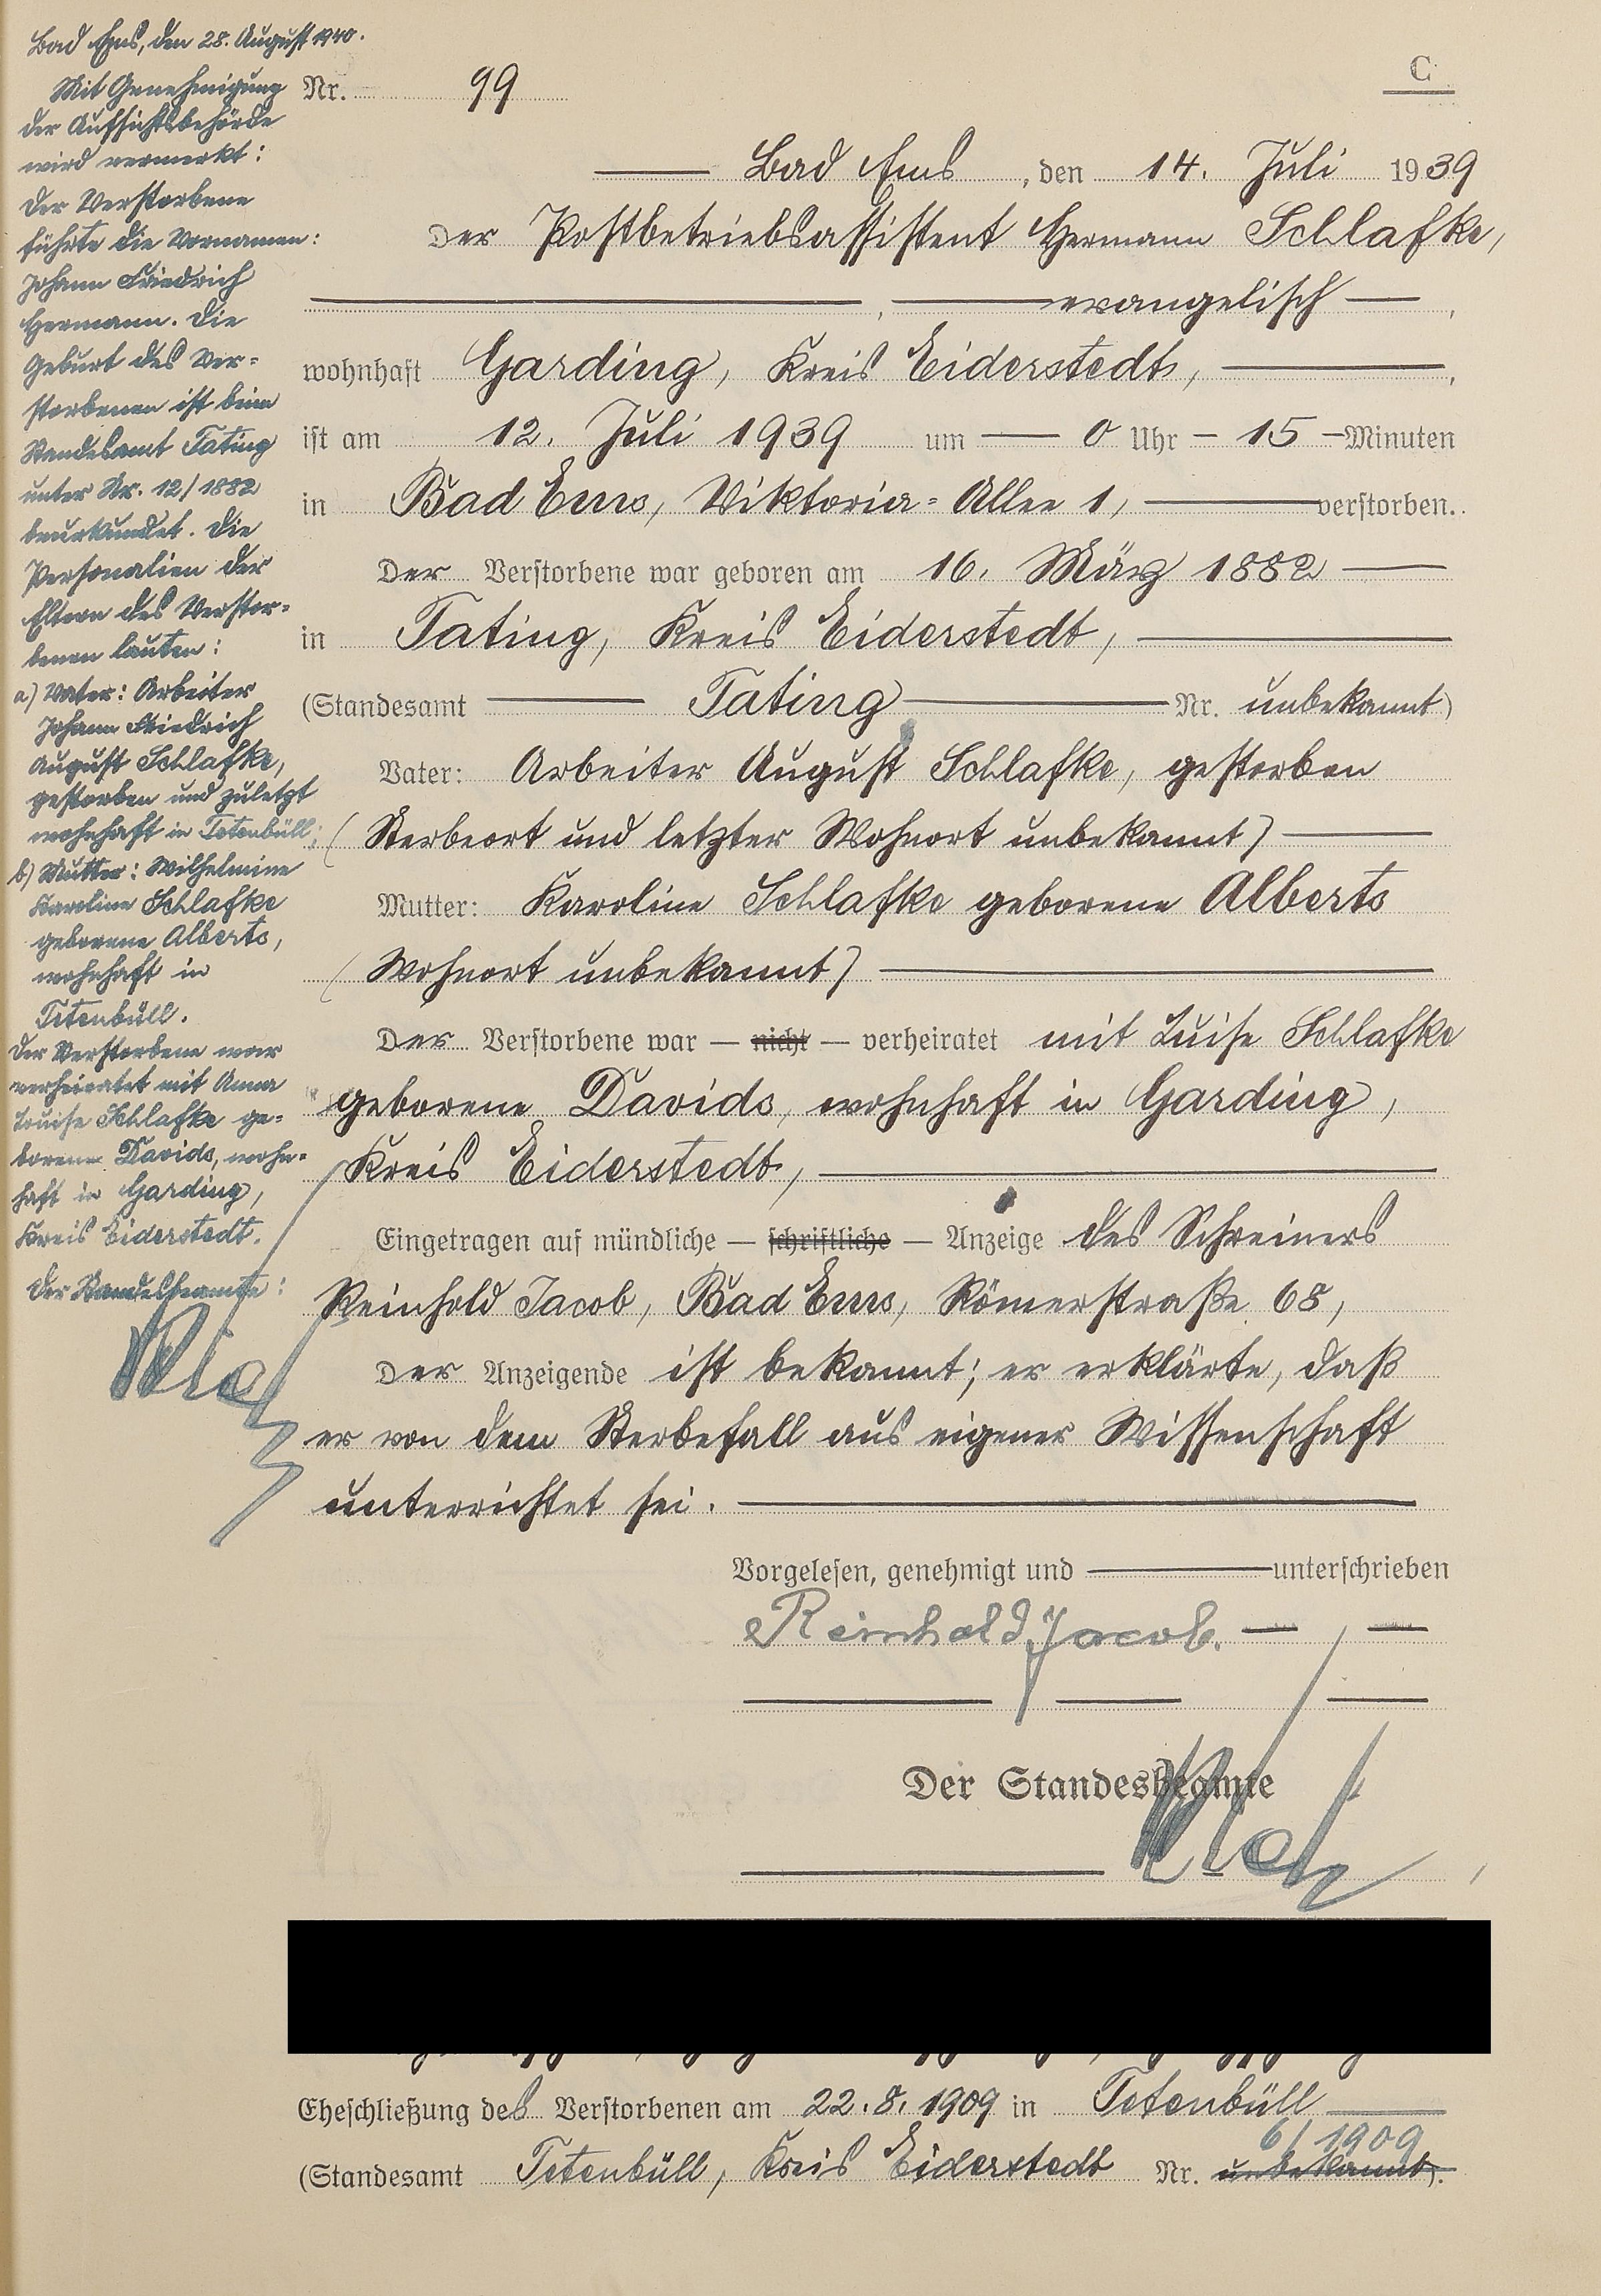 Bad Ems, den 28. August 1940.
Mit Genehmigung
der Aufsichtsbehörde
wird vermerkt:
Der Verstorbene
führte die Vornamen:
Johann Friedrich
Hermann. Die
Geburt des Ver-
storbenen ist beim
Standesamt Tating
unter Nr. 12/1882
beurkundet. Die
Personalien der
Eltern des Verstor-
benen lauten:
a) Vater: Arbeiter
Johann Friedrich
August Schlafke,
gestorben und zuletzt
wohnhaft in Tetenbüll;
b) Mutter: Wilhelmine
Karoline Schlafke
geborene Alberts,
wohnhaft in
Tetenbüll.
Der Verstorbene war
verheiratet mit Anna
Louise Schlafke ge-
borene Davids, wohn-
haft in Garding,
Kreis Eiderstedt.
Der Standesbeamte:
C
Nr. 99
Bad Ems, den 14. Juli 1939
Der Postbetriebsassistent Hermann Schlafke,
, evangelisch ,
wohnhaft Garding, Kreis Eiderstedt, ,
ist am 12. Juli 1939 um 0 Uhr 15 Minuten
in Bad Ems, Viktoria-Allee 1, verstorben.
Der Verstorbene war geboren am 16. März 1882
in Tating, Kreis Eiderstedt,
(Standesamt Tating Nr. unbekannt)
Vater: Arbeiter August Schlafke, gestorben
(Sterbeort und letzter Wohnort unbekannt)
Mutter: Karoline Schlafke geborene Alberts
(Wohnort unbekannt)
Der Verstorbene war — nicht — verheiratet mit Luise Schlafke
geborene Davids, wohnhaft in Garding,
Kreis Eiderstedt,
Eingetragen auf mündliche — schriftliche — Anzeige des Schreiners
Reinhold Jacob, Bad Ems, Römerstraße 68,
Der Anzeigende ist bekannt; er erklärte, daß
er von dem Sterbefall aus eigener Wissenschaft
unterrichtet sei.
Vorgelesen, genehmigt und unterschrieben
Reinhold Jacob.
Der Standesbeamte
Eheschließung des Verstorbenen am 22.8.1909 in Tetenbüll
6/1909
(Standesamt Tetenbüll, Kreis Eiderstedt Nr. unbekannt).